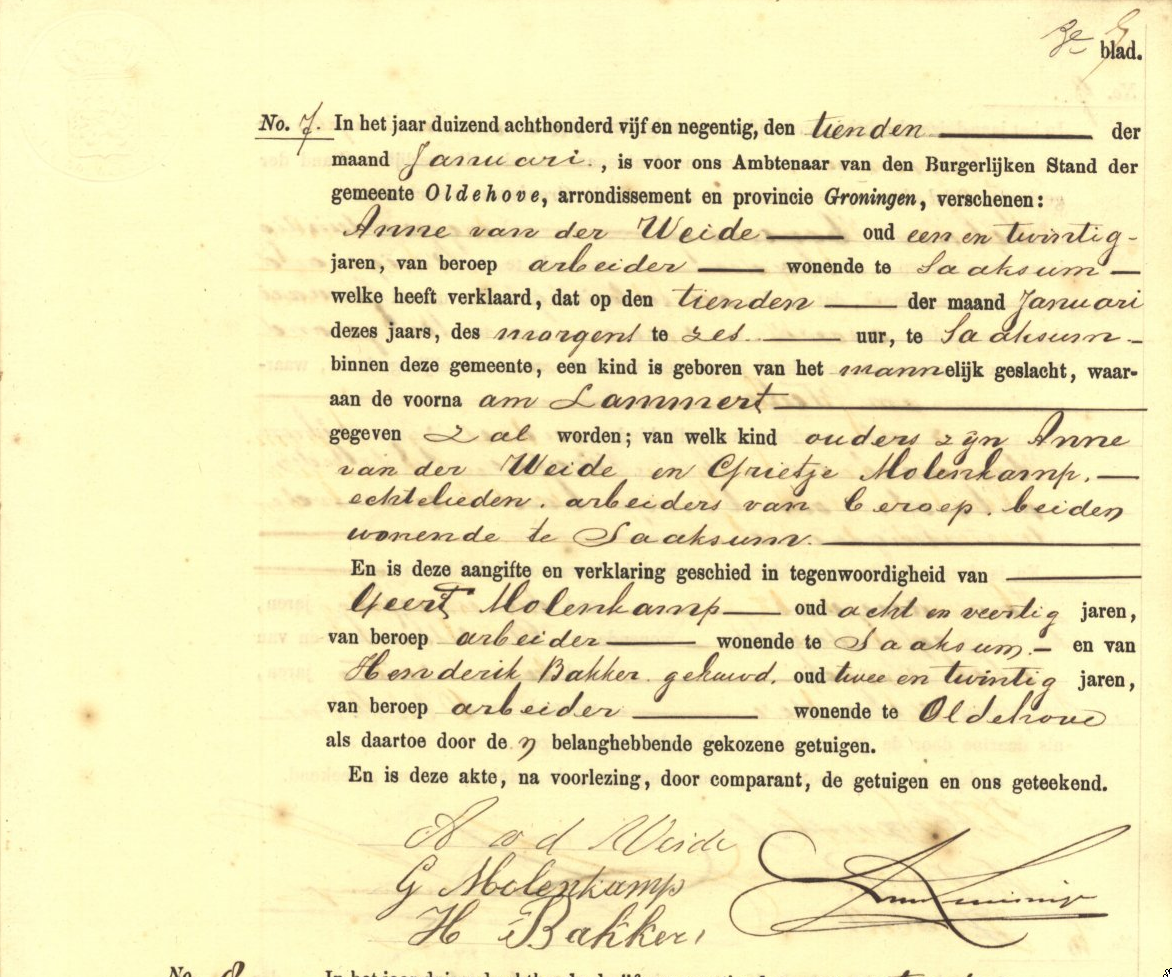 3e blad.
No. 7. In het jaar duizend achthonderd vijf en negentig, den tienden der
maand Januari, is voor ons Ambtenaar van den Burgerlijken Stand der
gemeente Oldehove, arrondissement en provincie Groningen, verschenen:
Anne van der Weide oud een en twintig
jaren, van beroep arbeider wonende te Saaksum
welke heeft verklaard, dat op den tienden der maand Januari
dezes jaars, des morgens te zes uur, te Saaksum
binnen deze gemeente, een kind is geboren van het mannelijk geslacht, waar-
aan de voornaam Lammert
gegeven zal worden; van welk kind ouders zijn Anne
van der Weide en Grietje Molenkamp,
echtelieden, arbeiders van beroep, beiden
wonende te Saaksum.
En is deze aangifte en verklaring geschied in tegenwoordigheid van
Geert Molenkamp oud acht en veertig jaren,
van beroep arbeider wonende te Saaksum. en van
Henderik Bakker gehuwd, oud twee en twintig jaren,
van beroep arbeider wonende te Oldehove
als daartoe door de n belanghebbende gekozene getuigen.
En is deze akte, na voorlezing, door comparant, de getuigen en ons geteekend.
A v d Weide
G Molenkamp
H Bakker,
No. 8